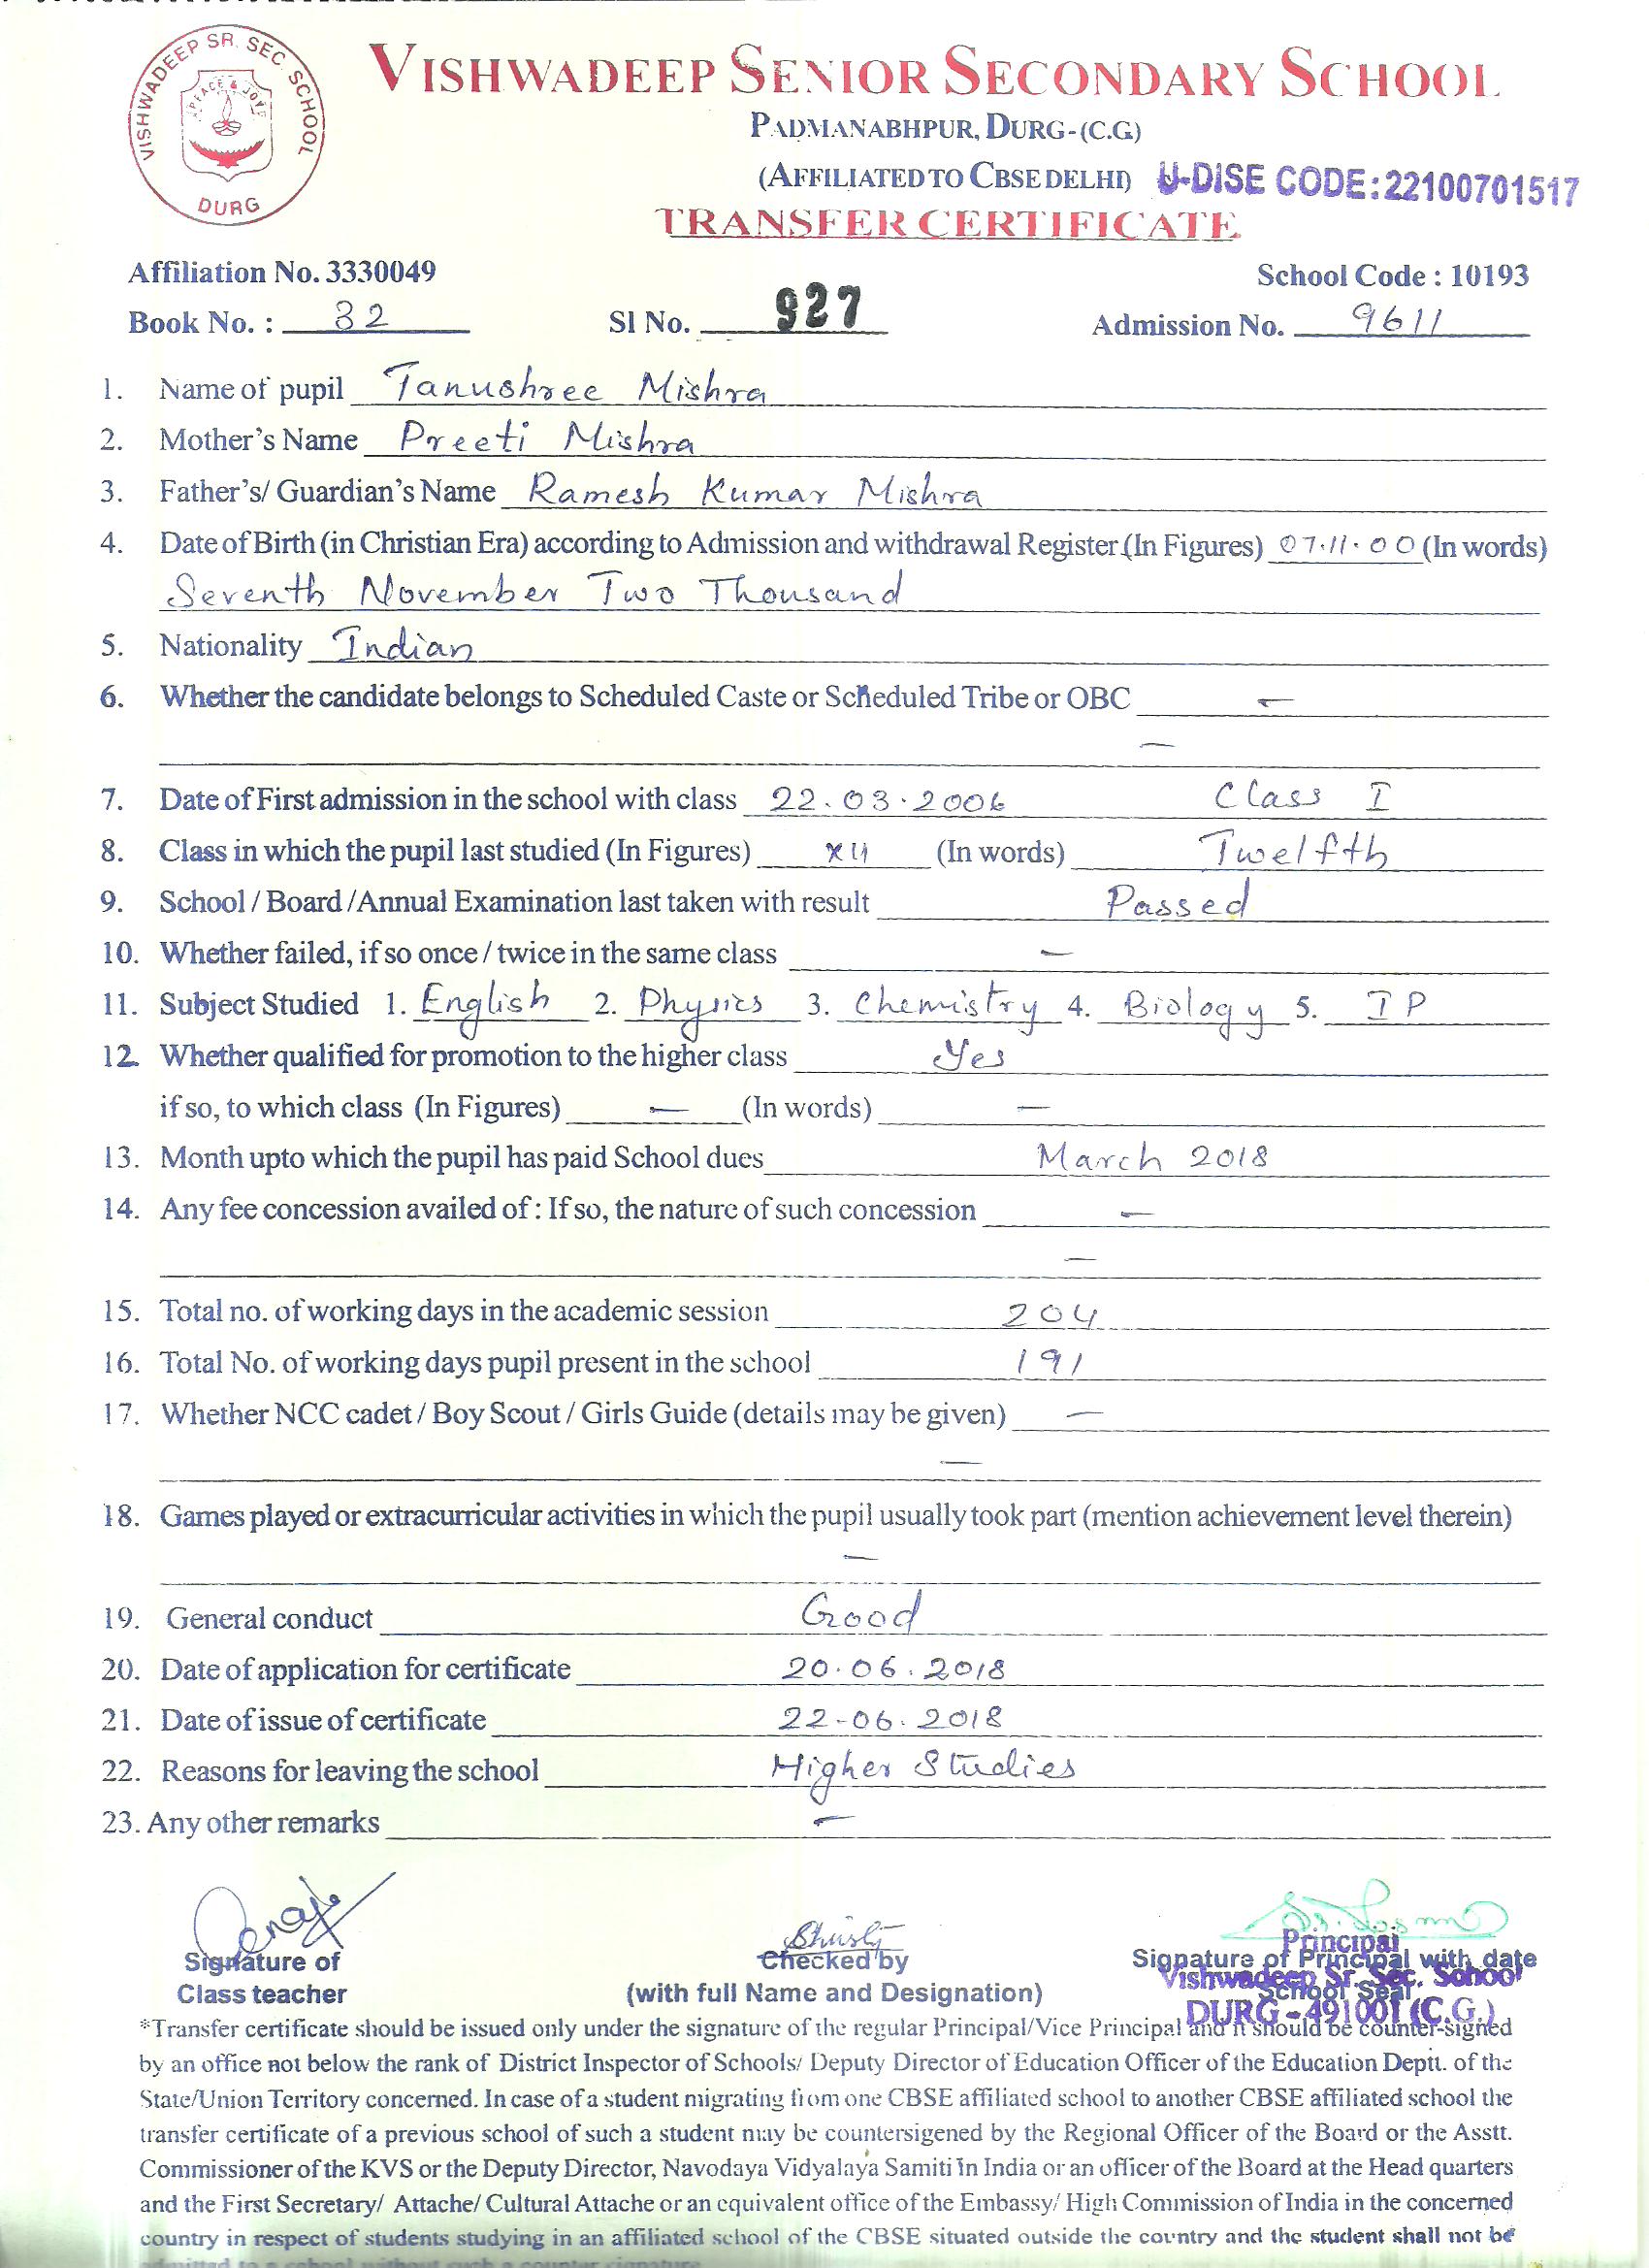 VISHWADEEP SR. SEC. SCHOOL
PEACE & LOVE
DURG
VISHWADEEP SENIOR SECONDARY SCHOOL
PADMANABHPUR, DURG-(C.G.)
(AFFILIATED TO CBSE DELHI) U-DISE CODE:22100701517
TRANSFER CERTIFICATE
Affiliation No. 3330049 School Code : 10193
Book No. : 32 Sl No. 927 Admission No. 9611
1. Name of pupil Tanushree Mishra
2. Mother's Name Preeti Mishra
3. Father's/ Guardian's Name Ramesh Kumar Mishra
4. Date of Birth (in Christian Era) according to Admission and withdrawal Register (In Figures) 07.11.00 (In words)
Seventh November Two Thousand
5. Nationality Indian
6. Whether the candidate belongs to Scheduled Caste or Scheduled Tribe or OBC —
—
7. Date of First admission in the school with class 22.03.2006 Class I
8. Class in which the pupil last studied (In Figures) XII (In words) Twelfth
9. School / Board /Annual Examination last taken with result Passed
10. Whether failed, if so once / twice in the same class —
11. Subject Studied 1. English 2. Physics 3. Chemistry 4. Biology 5. IP
12. Whether qualified for promotion to the higher class Yes
if so, to which class (In Figures) — (In words) —
13. Month upto which the pupil has paid School dues March 2018
14. Any fee concession availed of : If so, the nature of such concession —
—
15. Total no. of working days in the academic session 204
16. Total No. of working days pupil present in the school 191
17. Whether NCC cadet / Boy Scout / Girls Guide (details may be given) —
—
18. Games played or extracurricular activities in which the pupil usually took part (mention achievement level therein)
—
19. General conduct Good
20. Date of application for certificate 20.06.2018
21. Date of issue of certificate 22-06.2018
22. Reasons for leaving the school Higher Studies
23. Any other remarks —
Signature of Checked by Signature of Principal with date
Class teacher (with full Name and Designation) School Seal
Principal
Vishwadeep Sr. Sec. School
DURG - 491001 (C.G.)
*Transfer certificate should be issued only under the signature of the regular Principal/Vice Principal and it should be counter-signed
by an office not below the rank of District Inspector of Schools/ Deputy Director of Education Officer of the Education Deptt. of the
State/Union Territory concerned. In case of a student migrating from one CBSE affiliated school to another CBSE affiliated school the
transfer certificate of a previous school of such a student may be countersigened by the Regional Officer of the Board or the Asstt.
Commissioner of the KVS or the Deputy Director, Navodaya Vidyalaya Samiti In India or an officer of the Board at the Head quarters
and the First Secretary/ Attache/ Cultural Attache or an equivalent office of the Embassy/ High Commission of India in the concerned
country in respect of students studying in an affiliated school of the CBSE situated outside the country and the student shall not be
admitted to a school without such a counter signature